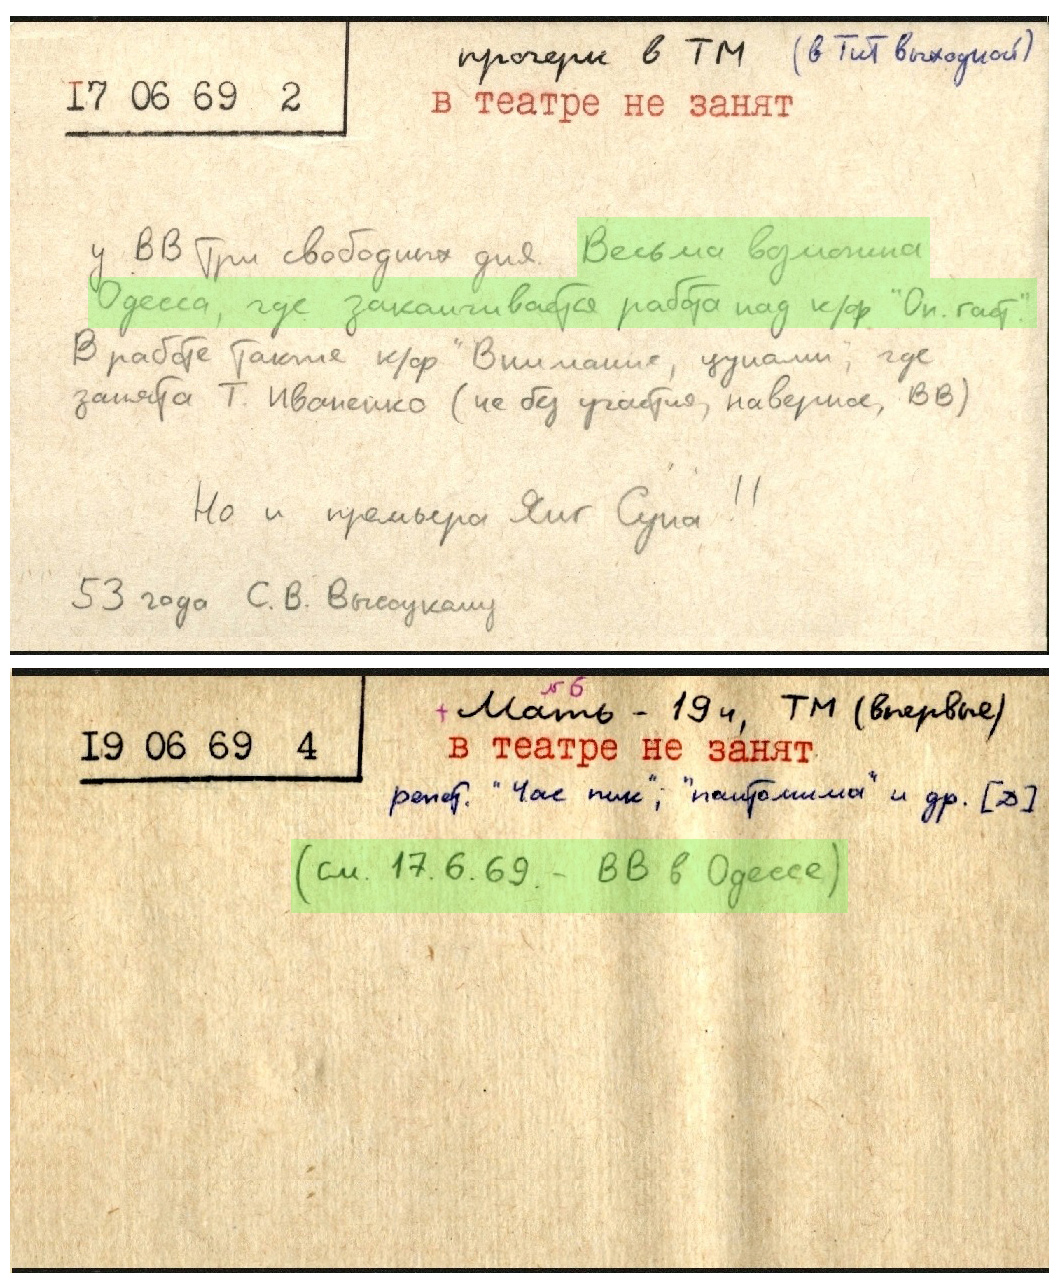 прочерк в ТМ (в ТиТ выходной)
I7 06 69 2
в театре не занят
у ВВ три свободных дня. Весьма возможна
Одесса, где заканчивается работа над к/ф "Оп. гаст."
В работе также к/ф "Внимание, цунами", где
занята Т. Иваненко (не без участия, наверное, ВВ)
Но и премьера Супа !!
53 года С.В. Высоцкому
№6
+ Мать - 19ч, ТМ (впервые)
I9 06 69 4
в театре не занят
репет. "Час пик"; "пантомима" и др. [Д]
(см. 17.6.69. - ВВ в Одессе)